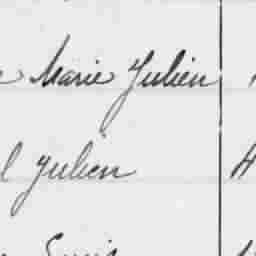 Marie Julien
l Julien 4